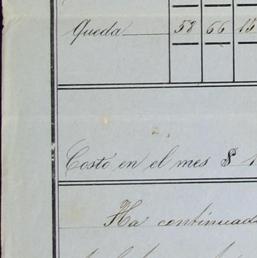 Queda 58 66 15
Costo en el mes $ 1
Ha continuad